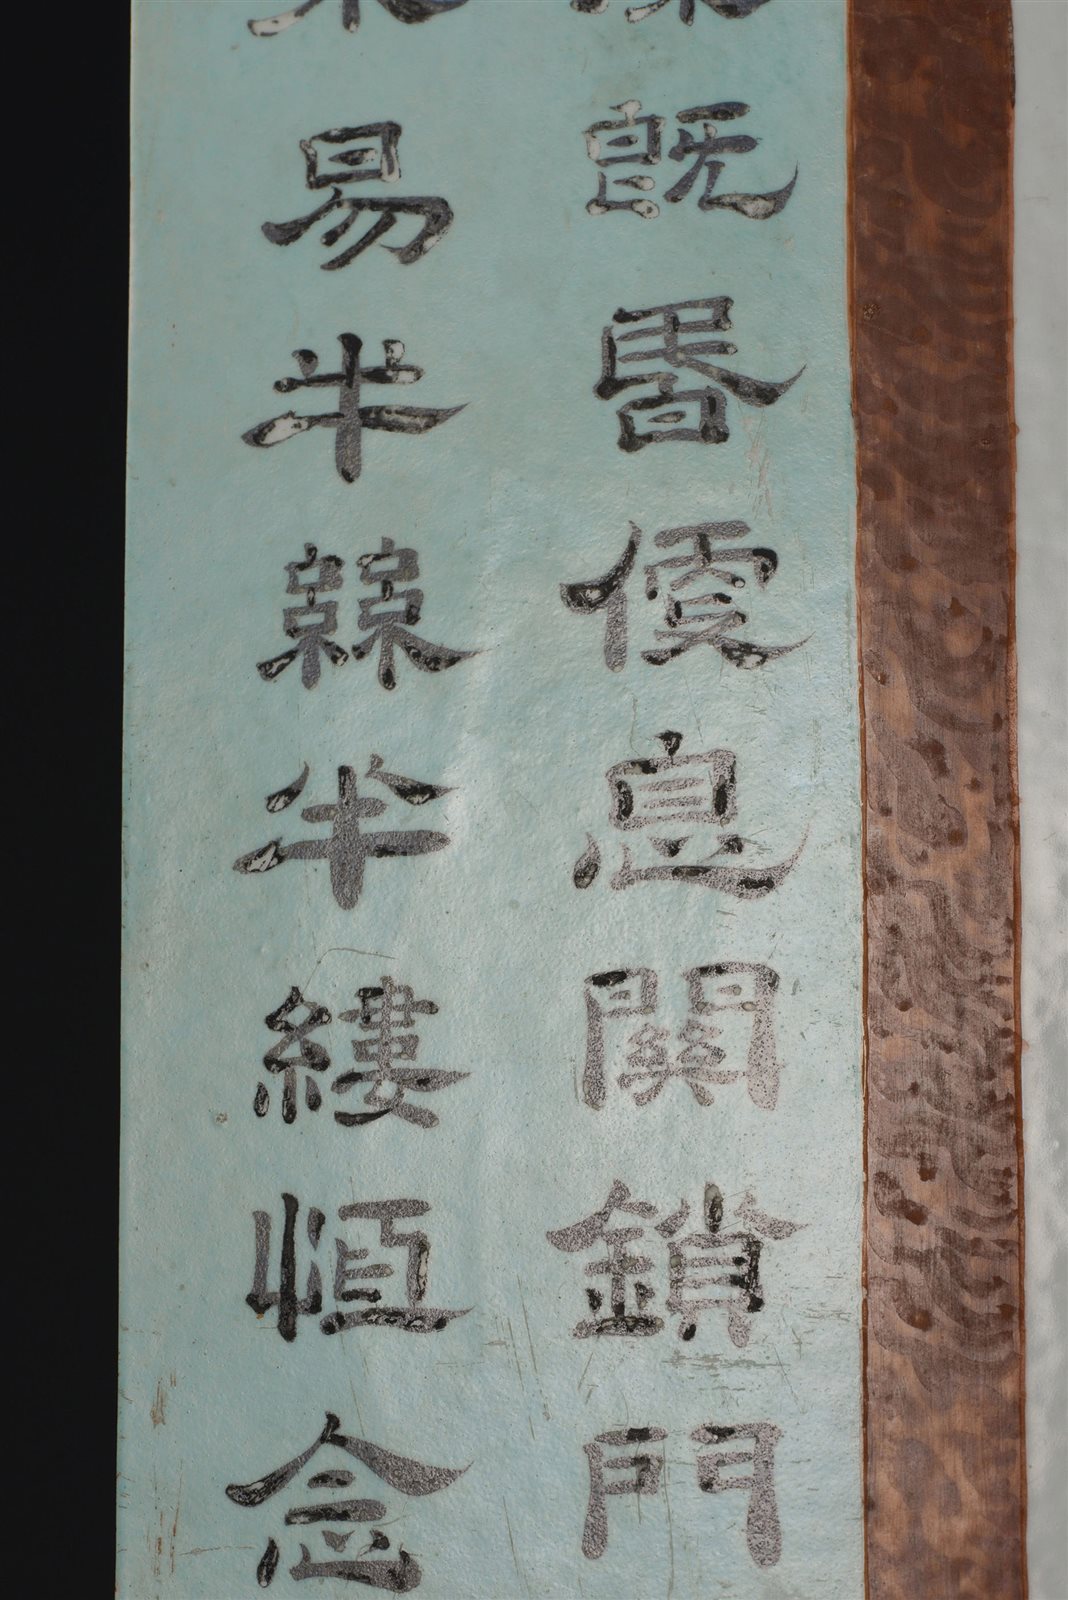 既昬便息關鎖門
易半絲半縷恒念